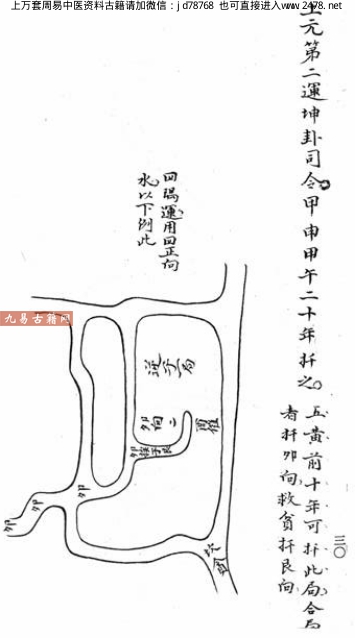 上万套周易中医资料古籍请加微信：jd78768 也可直接进入www.2478.net
上元第二運坤卦司令甲申甲午二十年扞之
五黄前十年可扞此局合局
者扞卯向救貧扞艮向
三〇
四隅運用四正向
水以下例此
九易古籍网
卯向二
卯
卯
卯